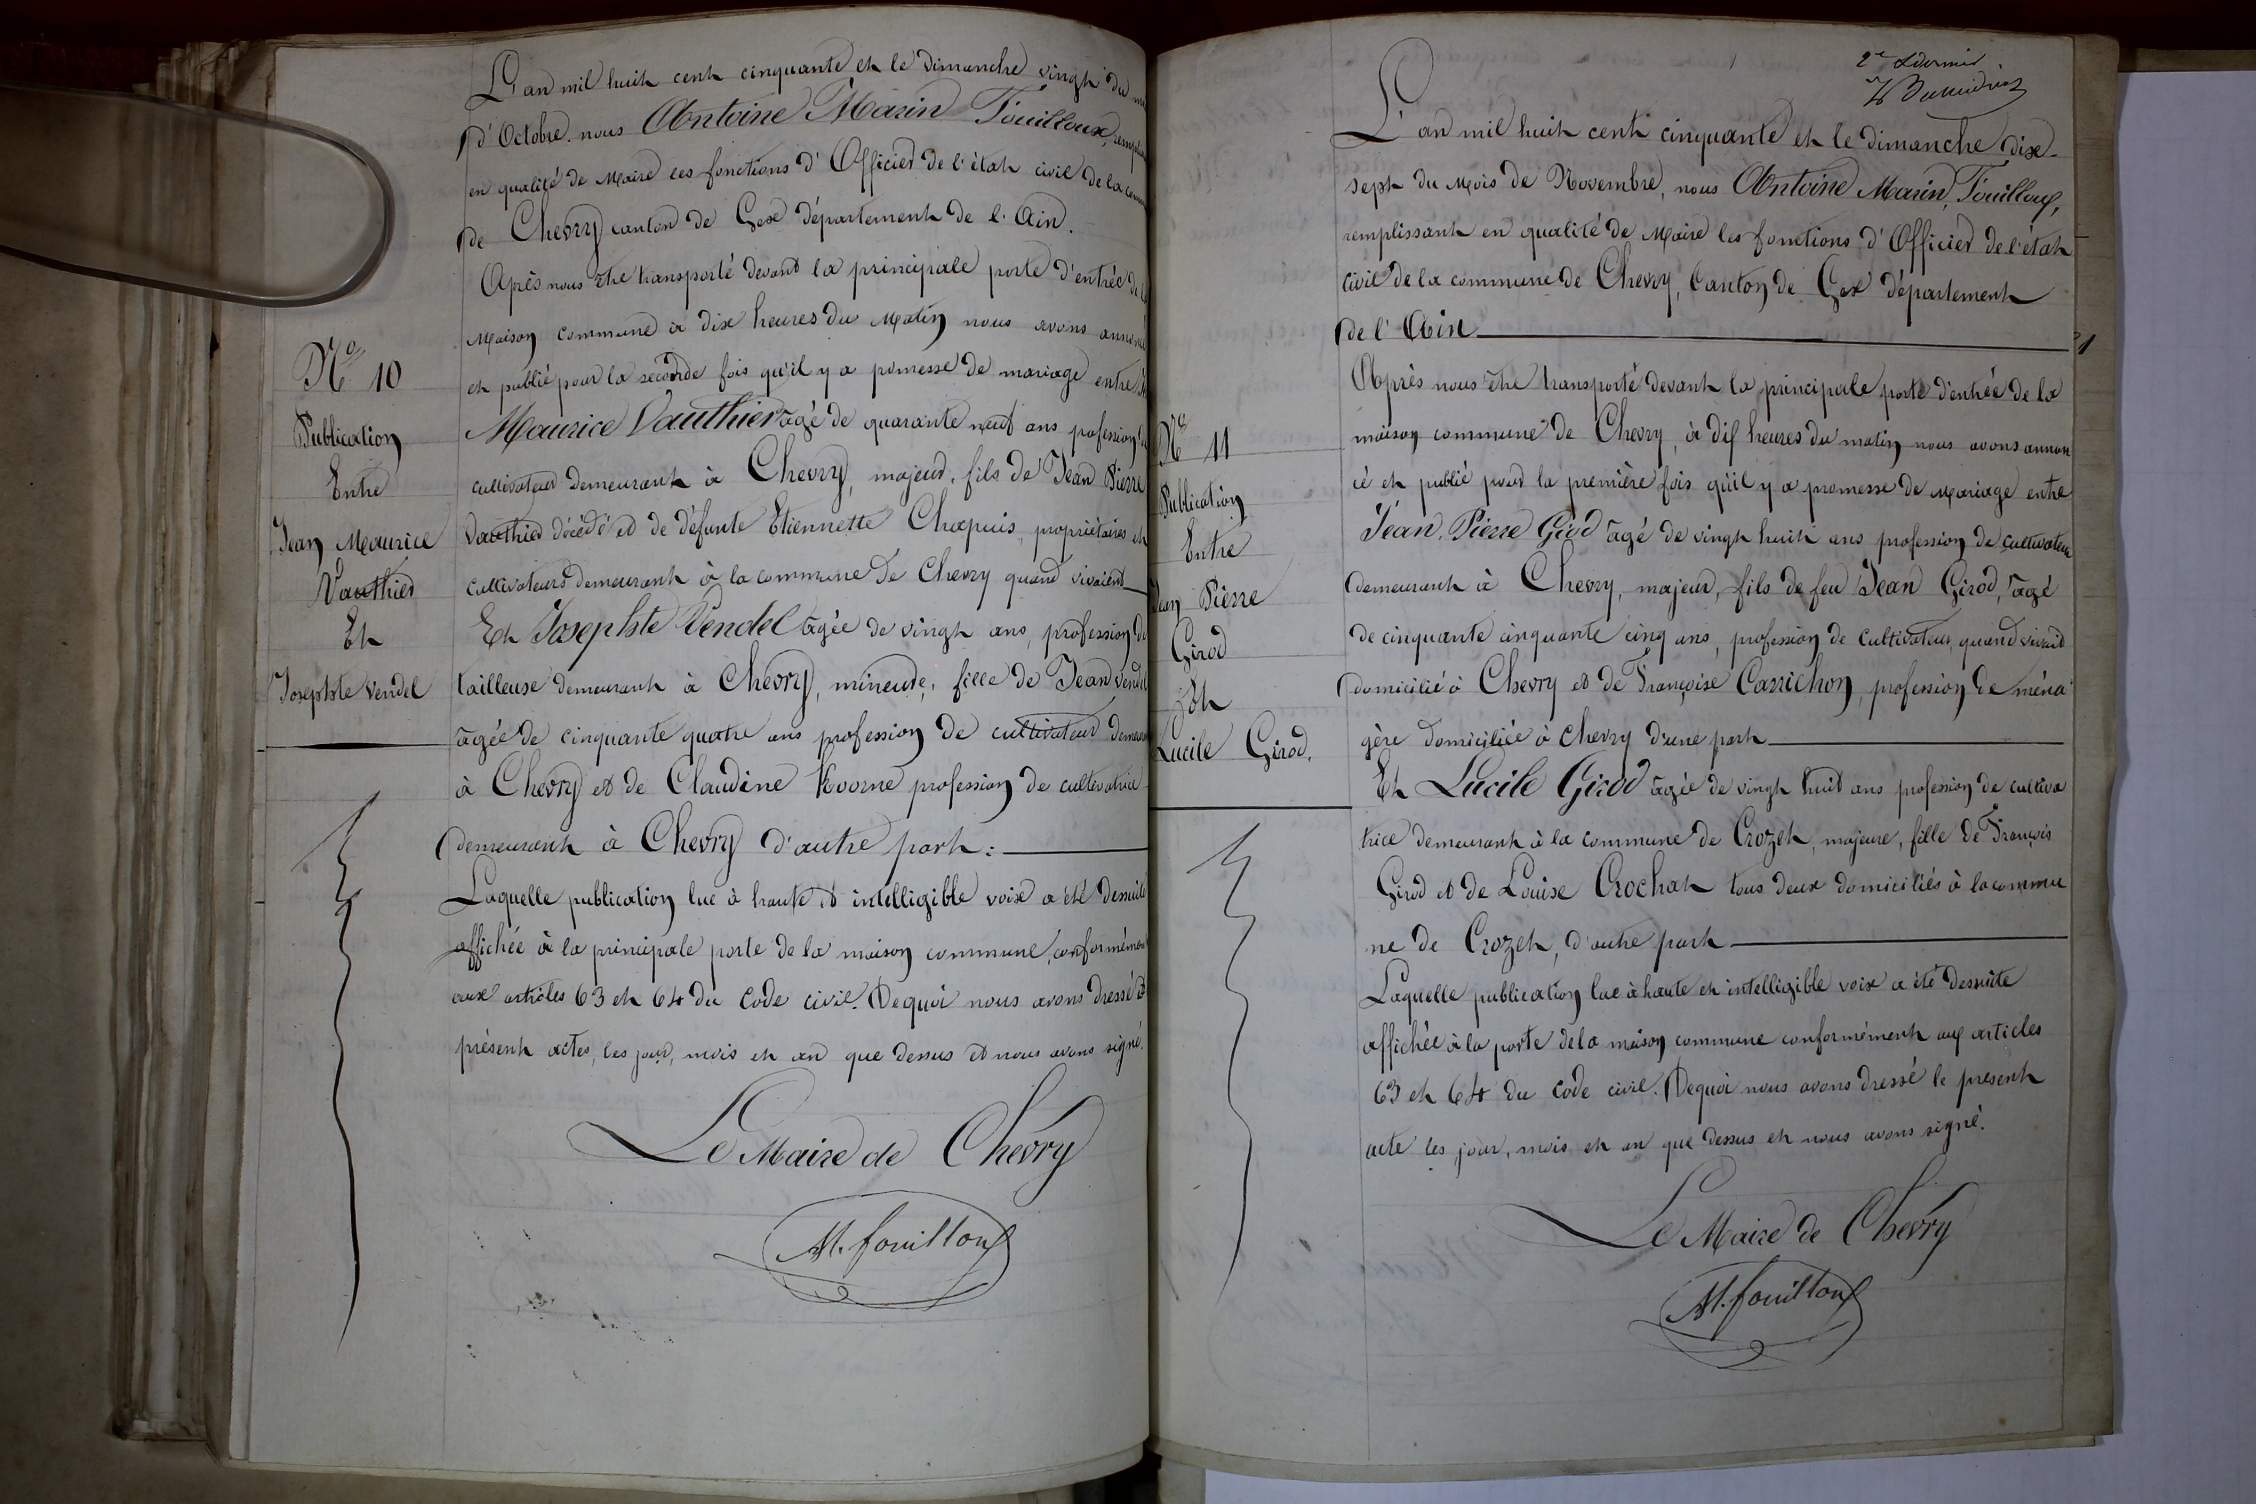 L'an mil huit cent cinquante et le dimanche vingt du
d'Octobre. nous Antoine Marin Fouilloux,
en qualité de Maire les fonctions d'Officier de l'état civil de la
de Chevry canton de Gex département de l'Ain.
Après nous être transporté devant la principale porte d'entrée de
maison commune à dix heures du matin nous avons
et publié pour la seconde fois qu'il y a promesse de mariage entre
Maurice Vauthier agé de quarante neuf ans profession
cultivateur demeurant à Chevry, majeur, fils de Jean Pierre
Vauthier décédé et de défunte Etiennette Chapuis, propriétaires et
cultivateurs demeurant à la commune de Chevry quand vivaient
Et Josephte Vendel agée de vingt ans, profession de
tailleuse demeurant à Chevry, mineure, fille de Jean Vendel
agée de cinquante quatre ans profession de cultivateur
à Chevry et de Claudine profession de cultivatrice
demeurant à Chevry d'autre part:
Laquelle publication lue à haute et intelligible voix a été dessuite
affichée à la principale porte de la maison commune, conformément
aux articles 63 et 64 du code civil. Dequoi nous avons dressé
présent actes, les jour, mois et an que dessus et nous avons signé.
Le Maire de Chevry
M. fouilloux
No 10
Publication
Entre
Jean Maurice
Vauthier
Et
Josephte Vendel
2e & dernier
L'an mil huit cent cinquante et le dimanche dix-
sept du mois de Novembre, nous Antoine Marin, Fouilloux,
remplissant en qualité de Maire les fonctions d'Officier de l'état
civil de la commune de Chevry, Canton de Gex département
de l'Ain
Après nous être transporté devant la principale porte d'entrée de la
maison commune de Chevry, à dix heures du matin nous avons annon
cé et publié pour la première fois qu'il y a promesse de mariage entre
Jean. Pierre Girod agé de vingt huit ans profession de cultivateur
demeurant à Chevry, majeur, fils de feu Jean Girod, agé
de cinquante cinquante cinq ans, profession de cultivateur, quand vivait
domicilié à Chevry et de Françoise Carrichon, profession de ména
gère domiciliée à Chevry d'une part
Et Lucile Girod agée de vingt huit ans profession de cultiva
trice demeurant à la commune de Crozet, majeure, fille de François
Girod et de Louise Crochat tous deux domiciliés à la commu
ne de Crozet, d'autre part
Laquelle publication lue à haute et intelligible voix a été dessuite
affichée à la porte de la maison commune conformément aux articles
63 et 64 du code civil. Dequoi nous avons dressé le présent
acte les jour, mois et an que dessus et nous avons signé.
Le Maire de Chevry
M. fouilloux
No 11
Publication
Entre
Jean Pierre
Girod
Et
Lucile Girod.